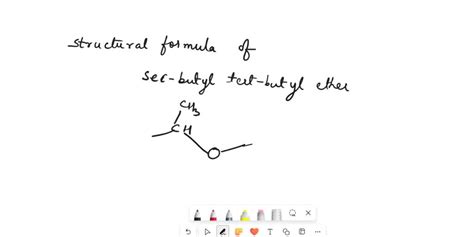 structural formula of
sec-butyl tert-butyl ether
CH3
CH
O